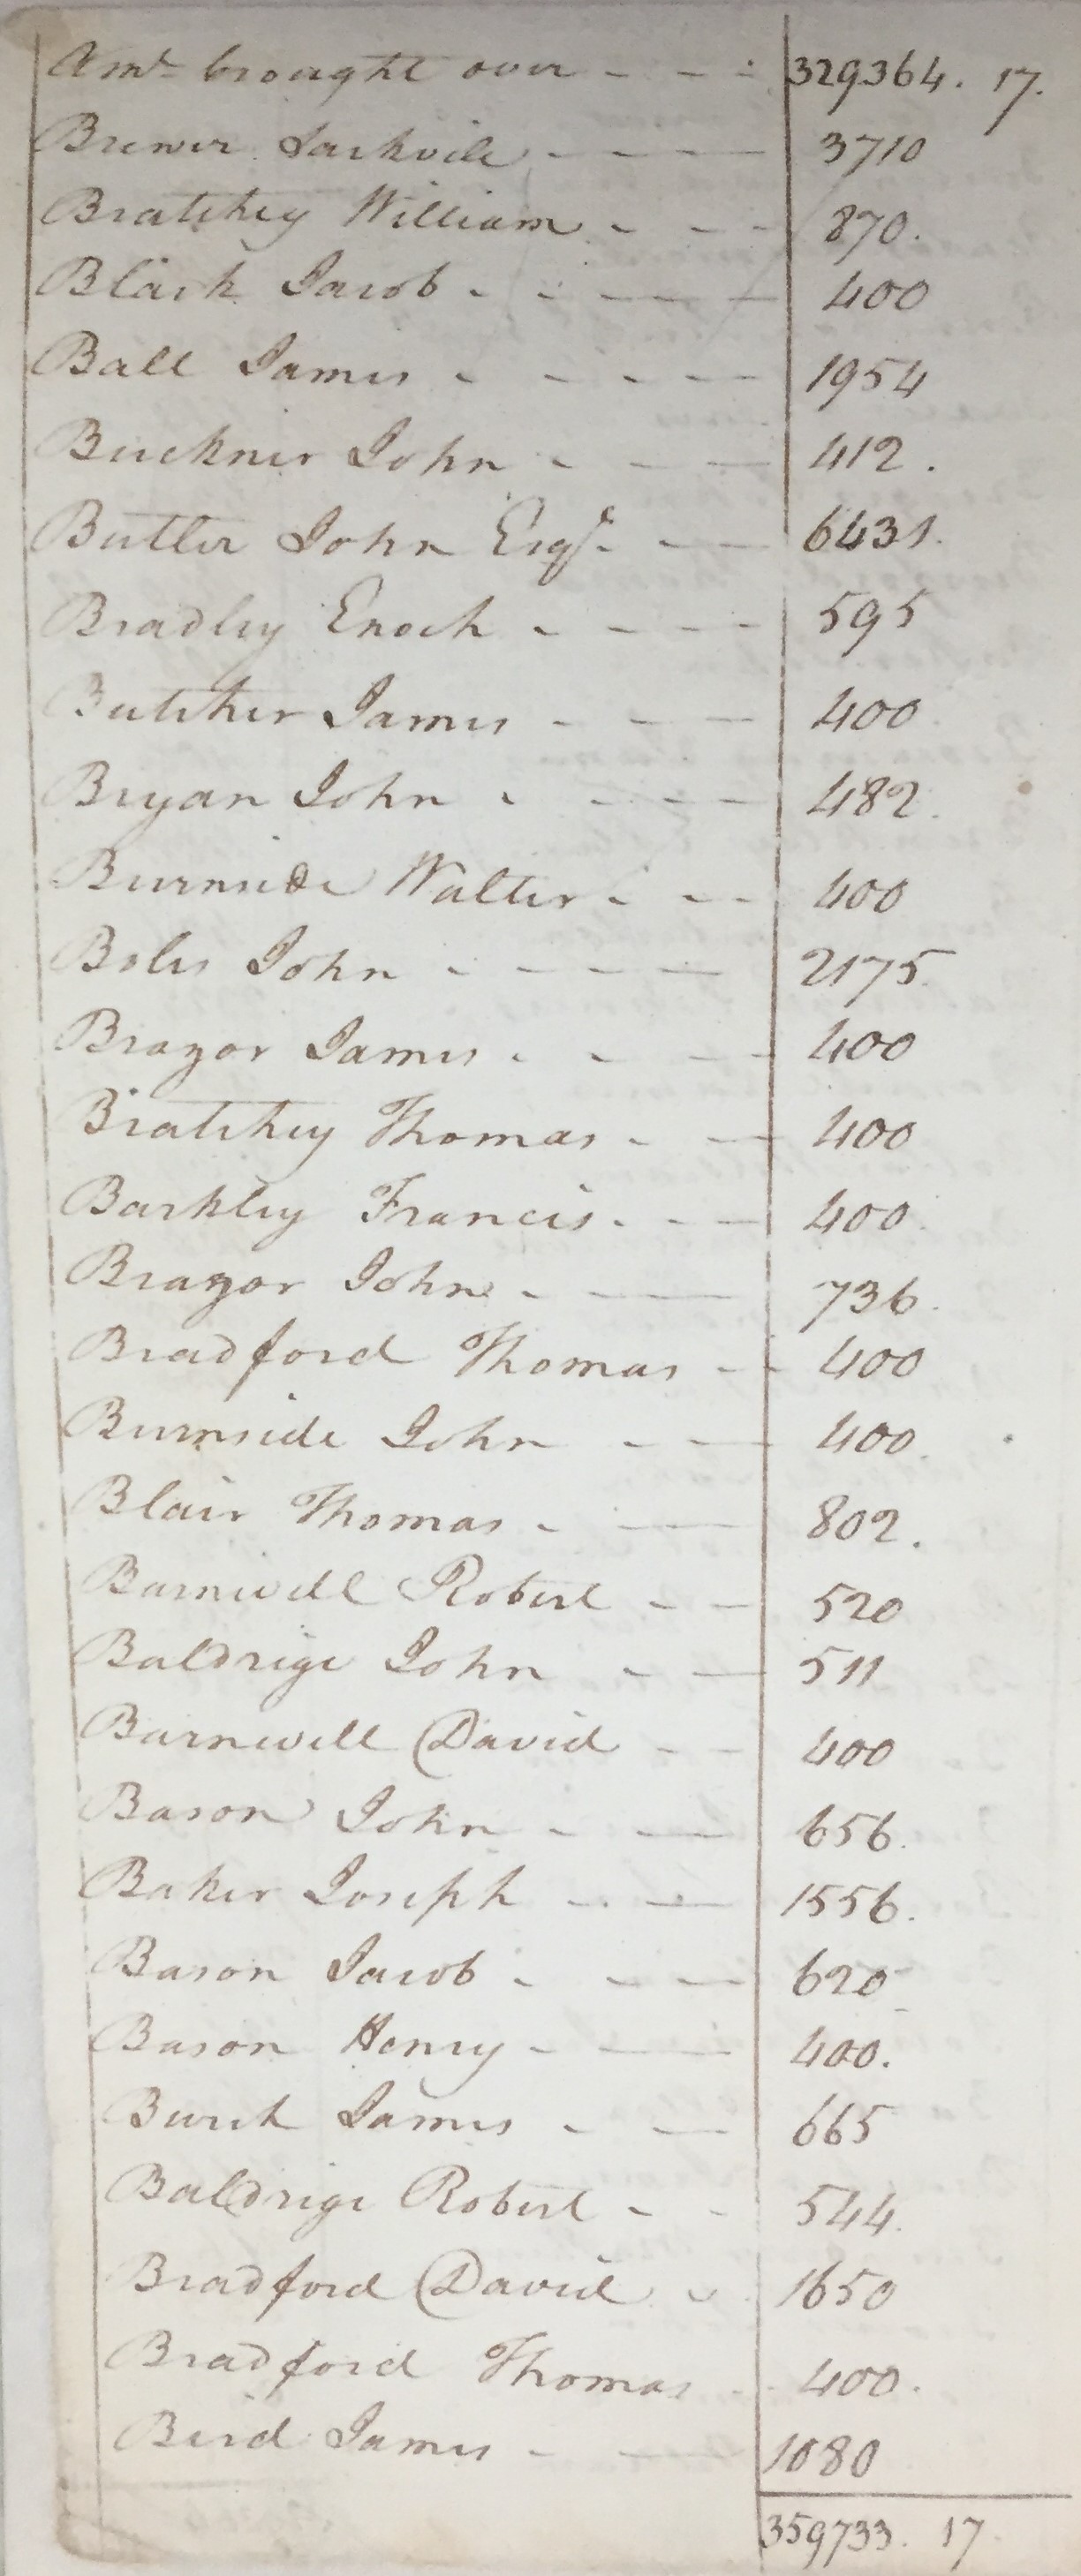 Amt brought over - - - 329364. 17.
Brewer Sackvile - - - - 3710
Bratchey William - - - 870.
Black Jacob - - - - 400
Ball James - - - - - 1954
Buckner John - - - 412.
Butler John Esqr. - - 6431.
Bradley Enoch - - - - 595
Butcher James - - - 400
Bryan John - - - - 482.
Burnside Walter - - - 400
Boles John - - - - - 2175.
Brazor James - - - - 400
Bratchey Thomas - - 400
Barkley Francis - - - 400.
Brazor John - - - 736.
Bradford Thomas - - 400
Burnside John - - 400.
Blair Thomas - - - 802.
Barnwell Robert - - 520
Baldrige John - - 511
Barnwell David - - 400
Bason John - - - 656.
Baker Joseph - - - 1556.
Bason Jacob - - - 620
Bason Henry - - - 400.
Burch James - - - 665
Baldrige Robert - - 544.
Bradford David - 1650
Bradford Thomas - 400.
Bird James - - - 1080
359733. 17